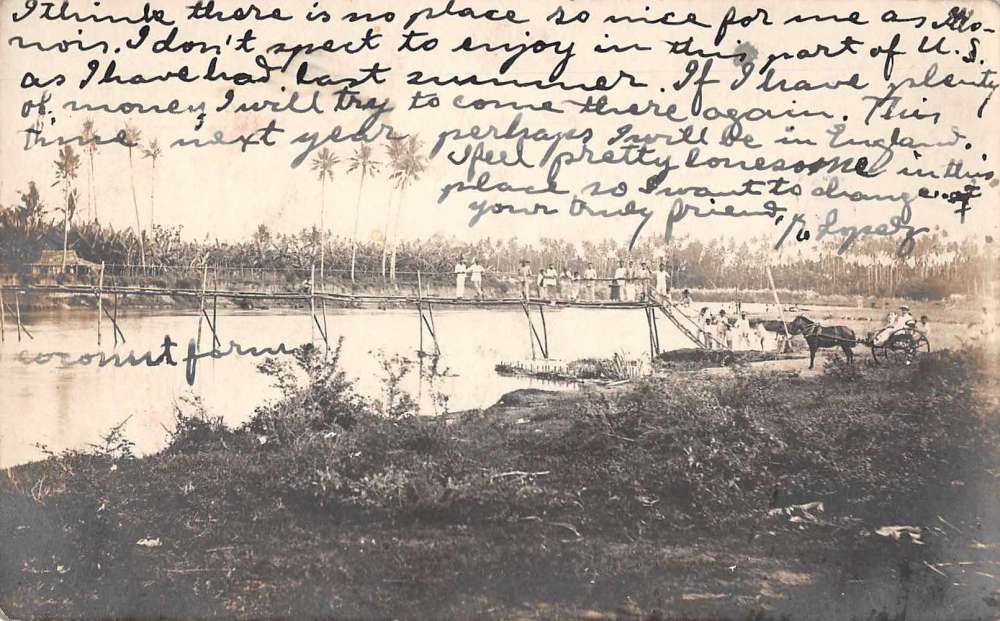 I think there is no place so nice for me as Illi-
nois. I don't spect to enjoy in this part of U.S.
as I have had last summer. If I have plenty
of money I will try to come there again. This
time next year perhaps I will be in England.
I feel pretty lonesome in this
place so I want to change it
your truly friend,
coconut farm